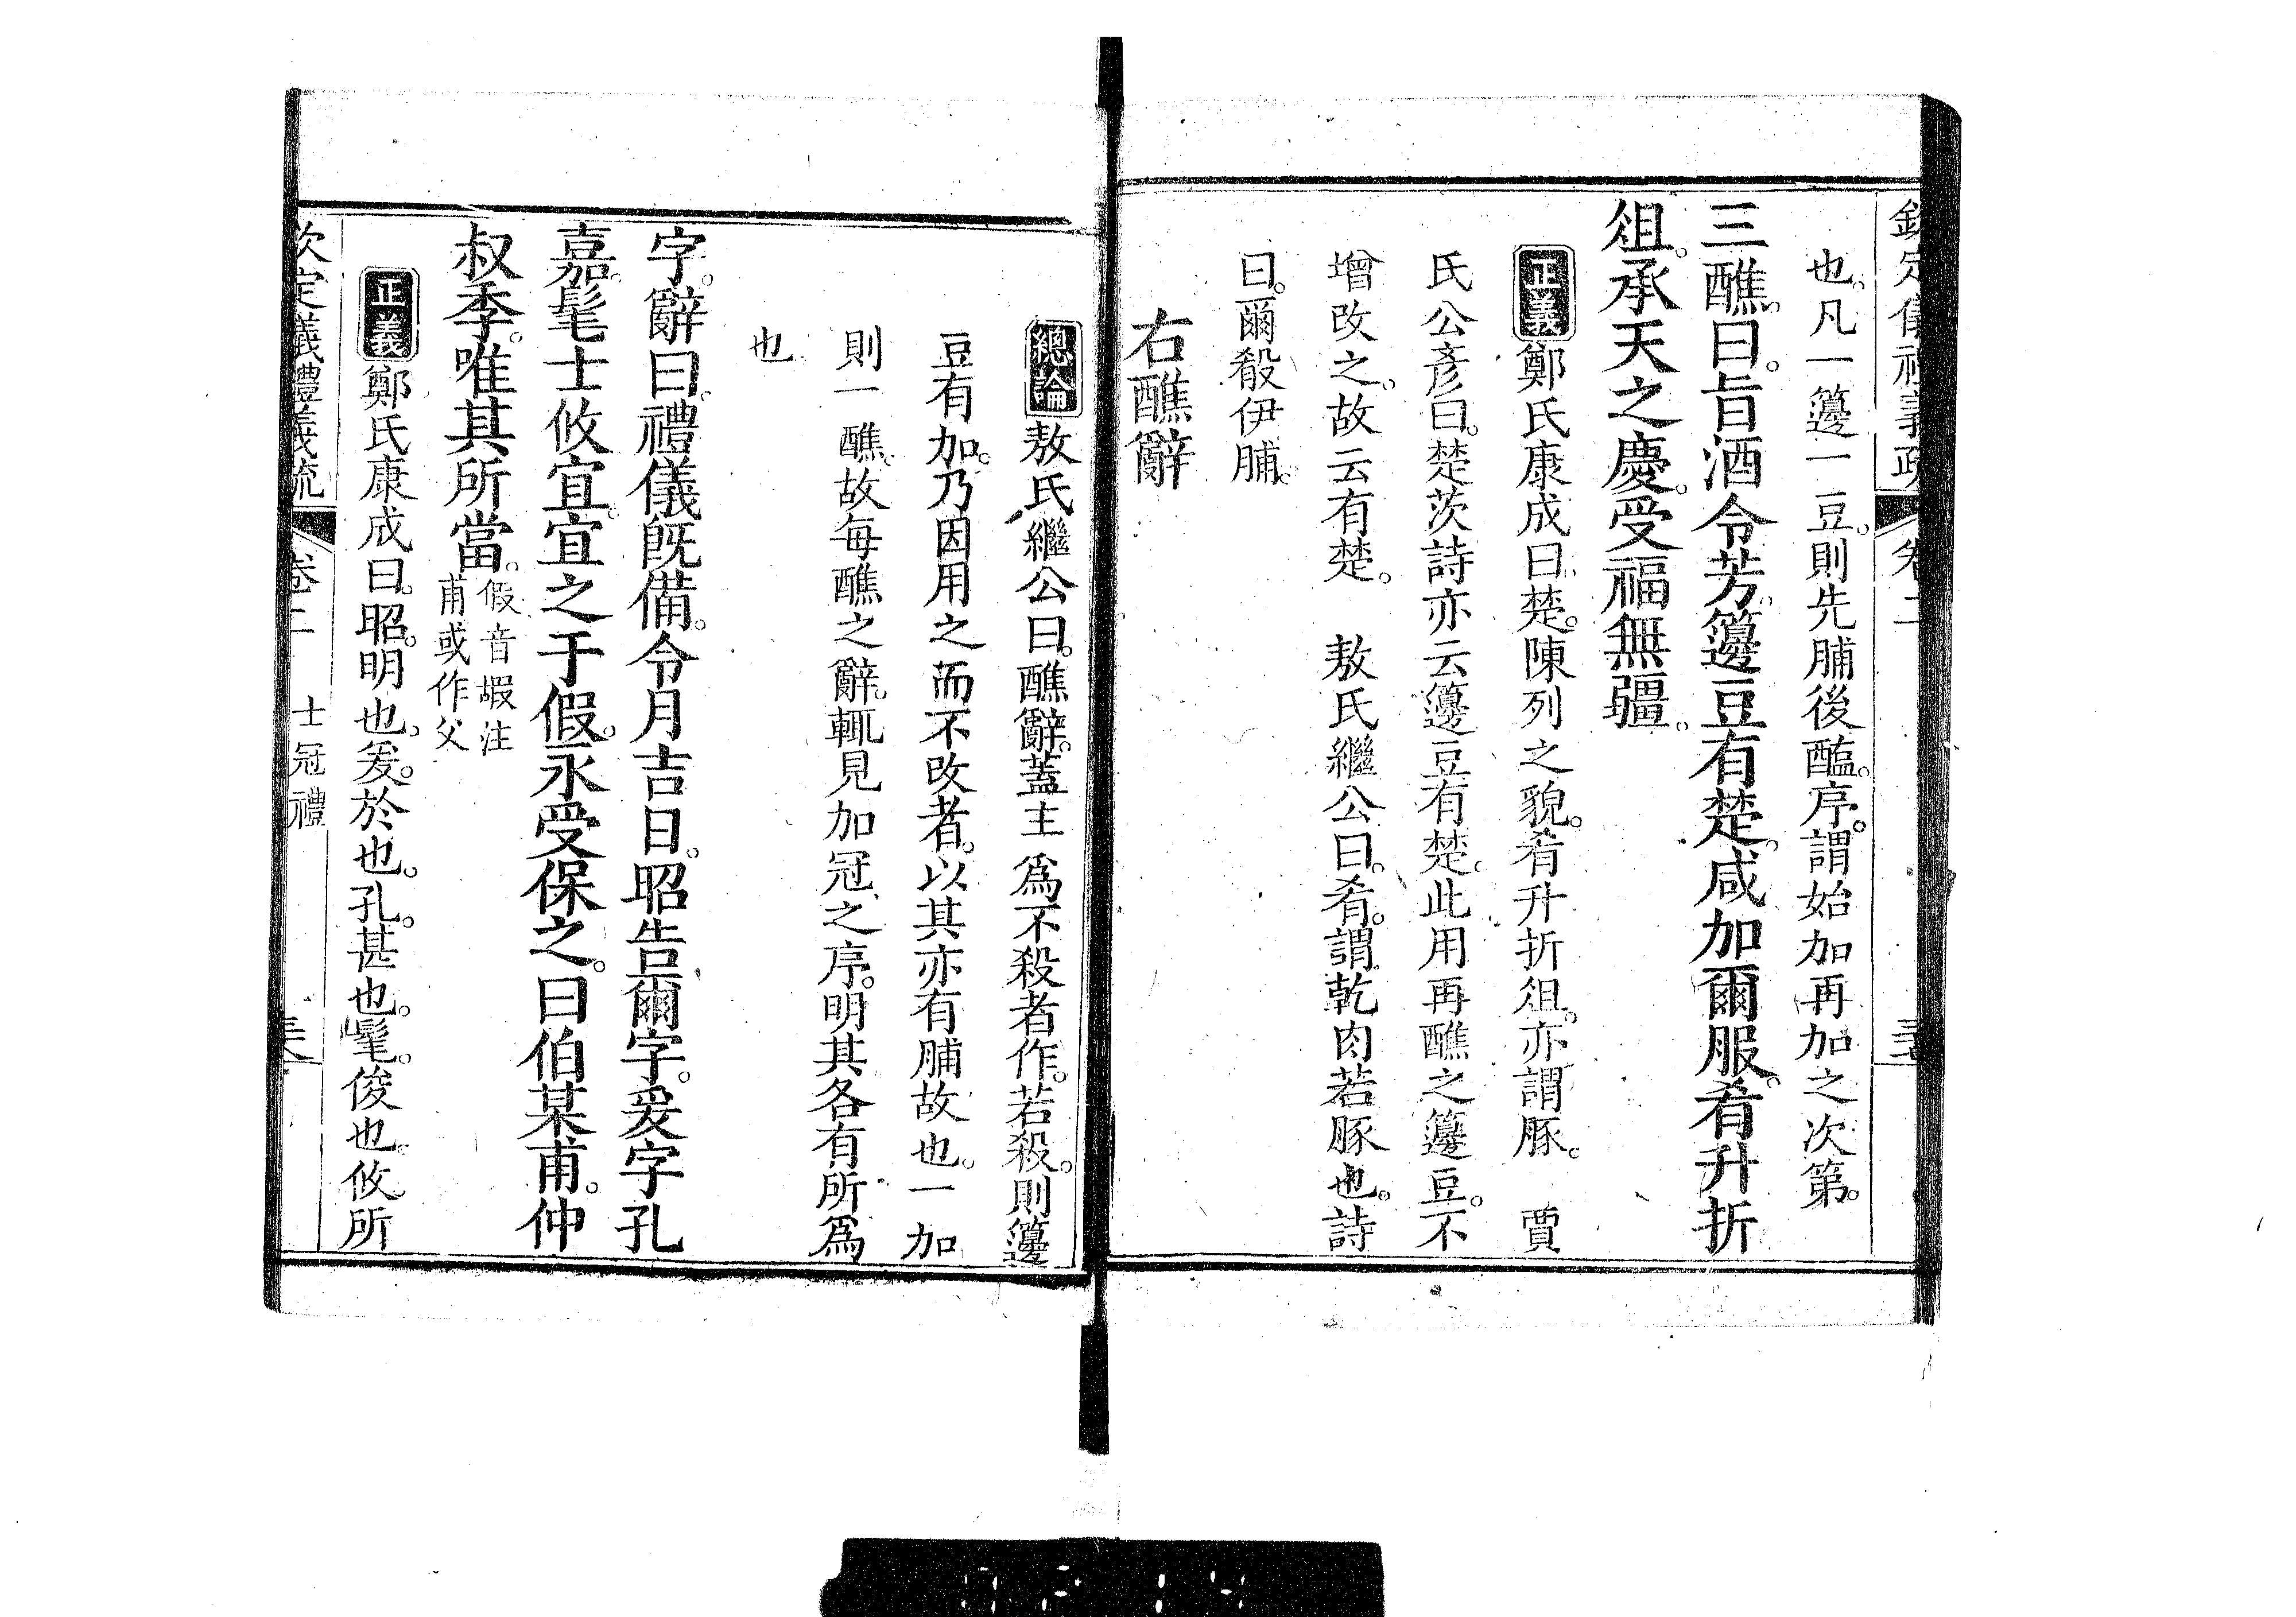 欽定儀禮義疏 卷二
也。凡一籩一豆。則先脯後醢。序。謂始加再加之次第。
三醮。曰。旨酒令芳。籩豆有楚。咸加爾服。肴升折
俎。承天之慶。受福無疆。
正義鄭氏康成曰。楚。陳列之貌。肴升折俎。亦謂豚。 賈
氏公彥曰。楚茨詩亦云籩豆有楚。此用再醮之籩豆。不
增改之。故云有楚。 敖氏繼公曰。肴。謂乾肉若豚也。詩
曰。爾殽伊脯。
右醮辭
總論敖氏繼公曰。醮辭。蓋主為不殺者作。若殺。則籩
豆有加。乃因用之而不改者。以其亦有脯故也。一加
則一醮。故每醮之辭。輒見加冠之序。明其各有所為
也
字。辭曰。禮儀旣備。令月吉日。昭告爾字。爰字孔
嘉。髦士攸宜。宜之于假。永受保之。曰伯某甫。仲
叔季。唯其所當。假音嘏注
甫或作父
正義鄭氏康成曰。昭。明也。爰。於也。孔。甚也。髦。俊也。攸。所
欽定儀禮義疏 卷二 士冠禮